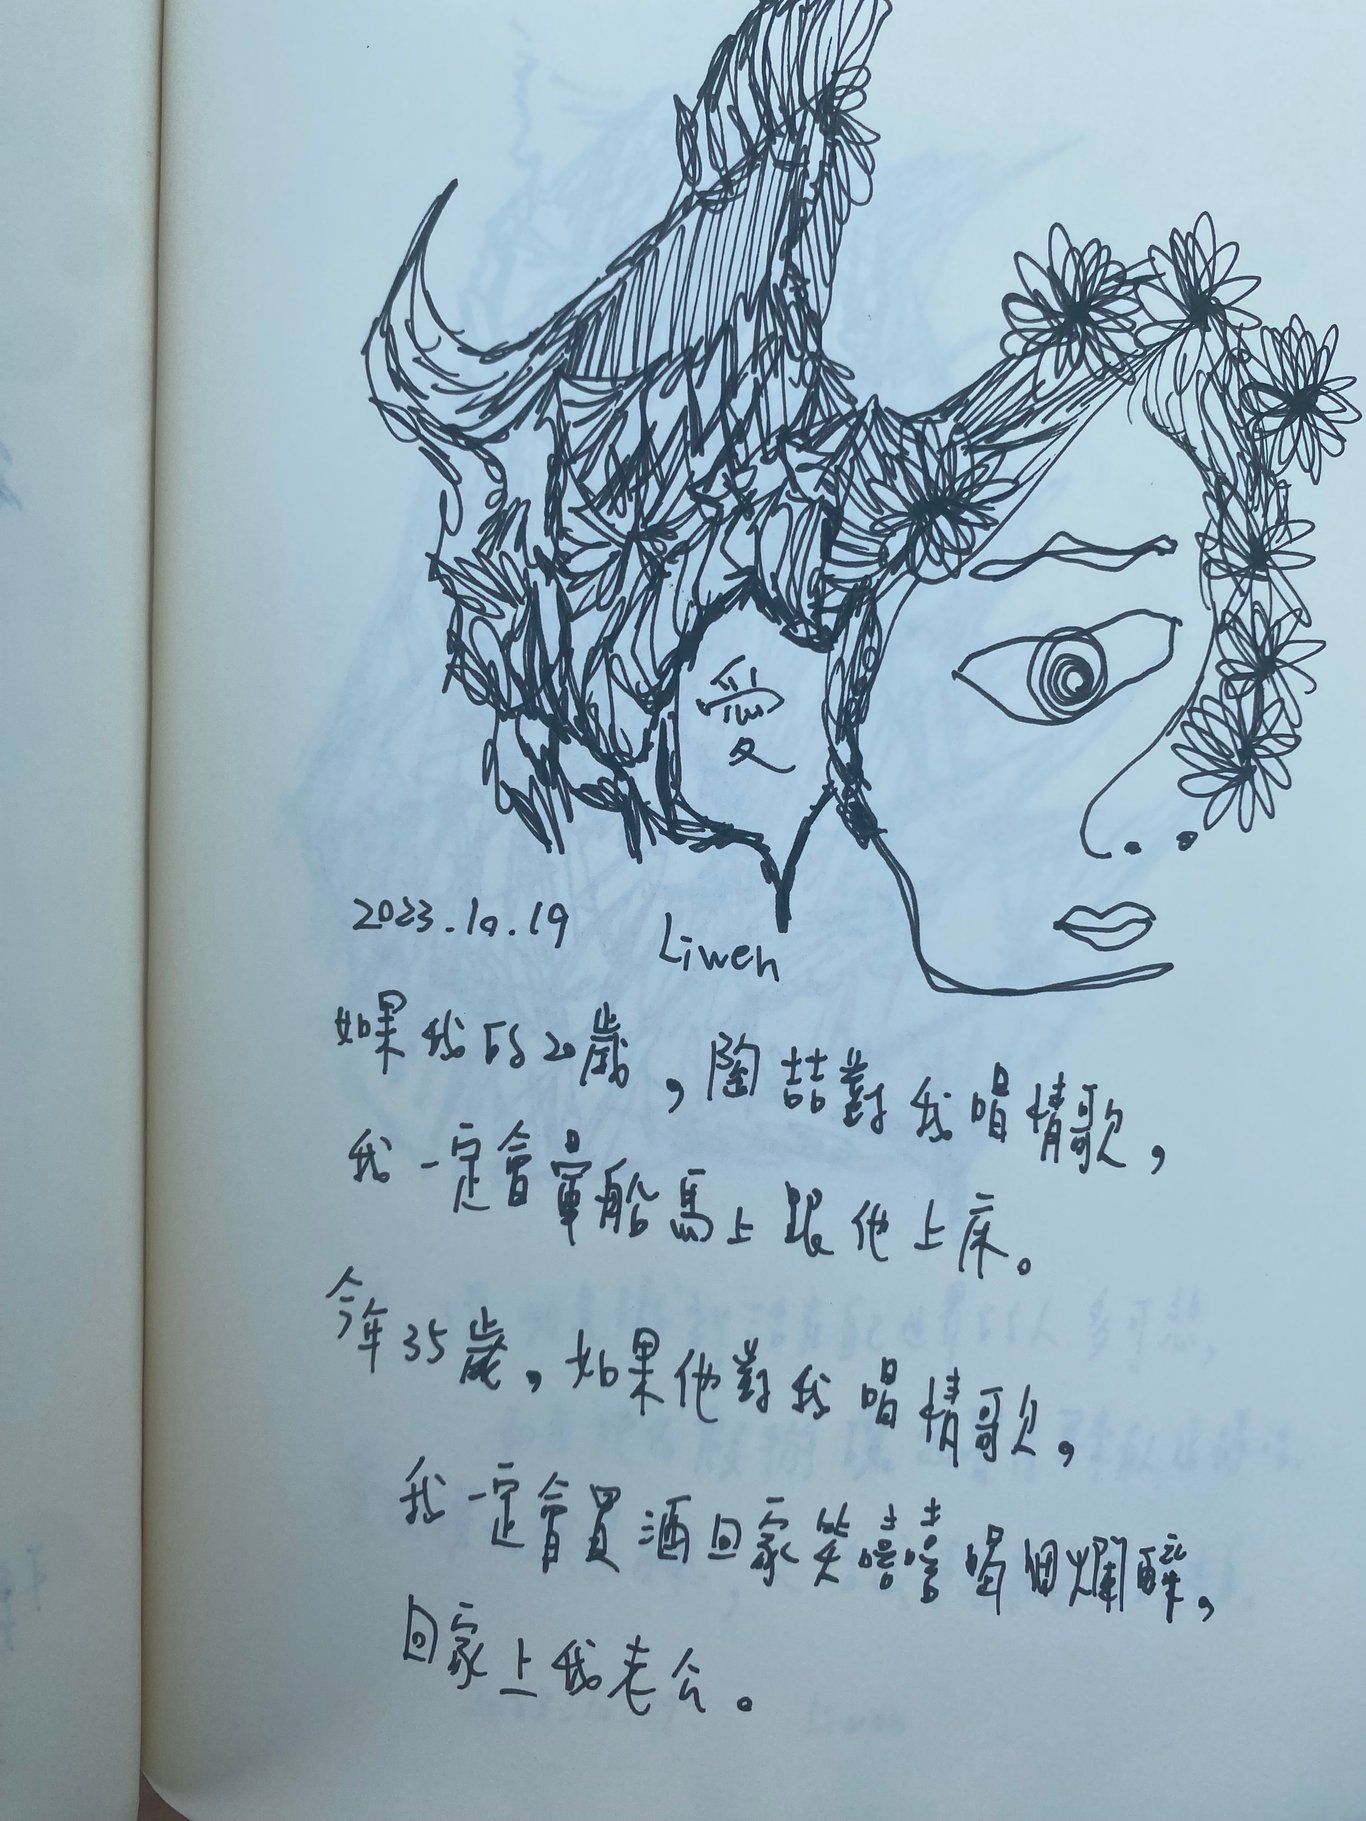 愛
2023.10.19
Liwen
如果我的20歲，陶喆對我唱情歌，
我一定會暈船馬上跟他上床。
今年35歲，如果他對我唱情歌，
我一定會買酒回家笑嘻嘻喝個爛醉，
回家上我老公。